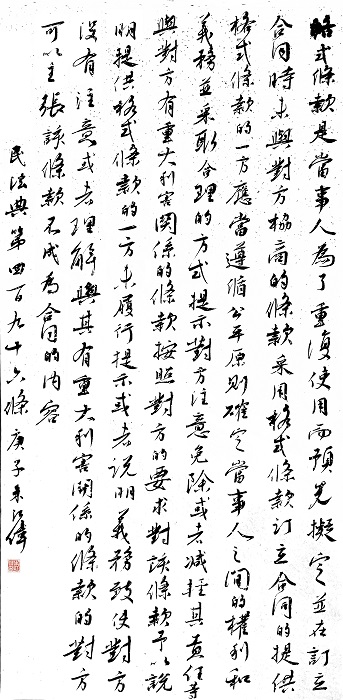 格式條款是當事人為了重復使用而預先擬定並在訂立
合同時未與對方協商的條款采用格式條款訂立合同的提供
格式條款的一方應當遵循公平原則確定當事人之間的權利和
義務並采取合理的方式提示對方注意免除或者減輕其責任等
與對方有重大利害關係的條款按照對方的要求對該條款予以說
明提供格式條款的一方未履行提示或者說明義務致使對方
沒有注意或者理解與其有重大利害關係的條款的對方
可以主張該條款不成為合同的內容
民法典第四百九十六條 庚子